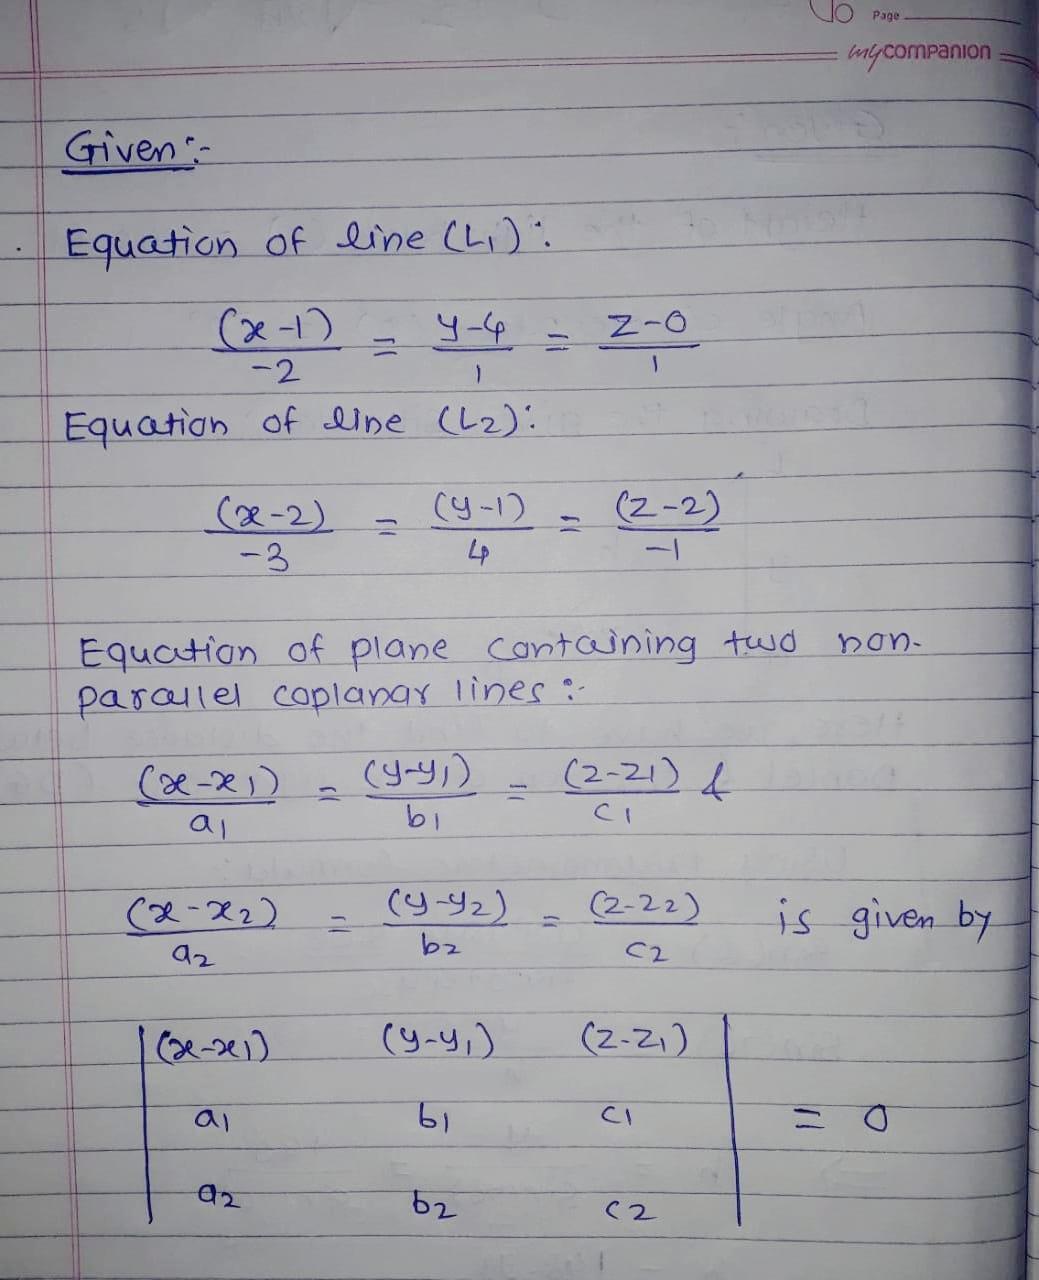 Page
mycompanion
Given :-
Equation of line (L1) :
(x-1)/-2 = y-4/1 = z-0/1
Equation of line (L2) :
(x-2)/-3 = (y-1)/4 = (z-2)/-1
Equation of plane containing two non-
parallel coplanar lines :-
(x-x1)/a1 = (y-y1)/b1 = (z-z1)/c1 &
(x-x2)/a2 = (y-y2)/b2 = (z-z2)/c2 is given by
| (x-x1) (y-y1) (z-z1) |
| a1 b1 c1 | = 0
| a2 b2 c2 |